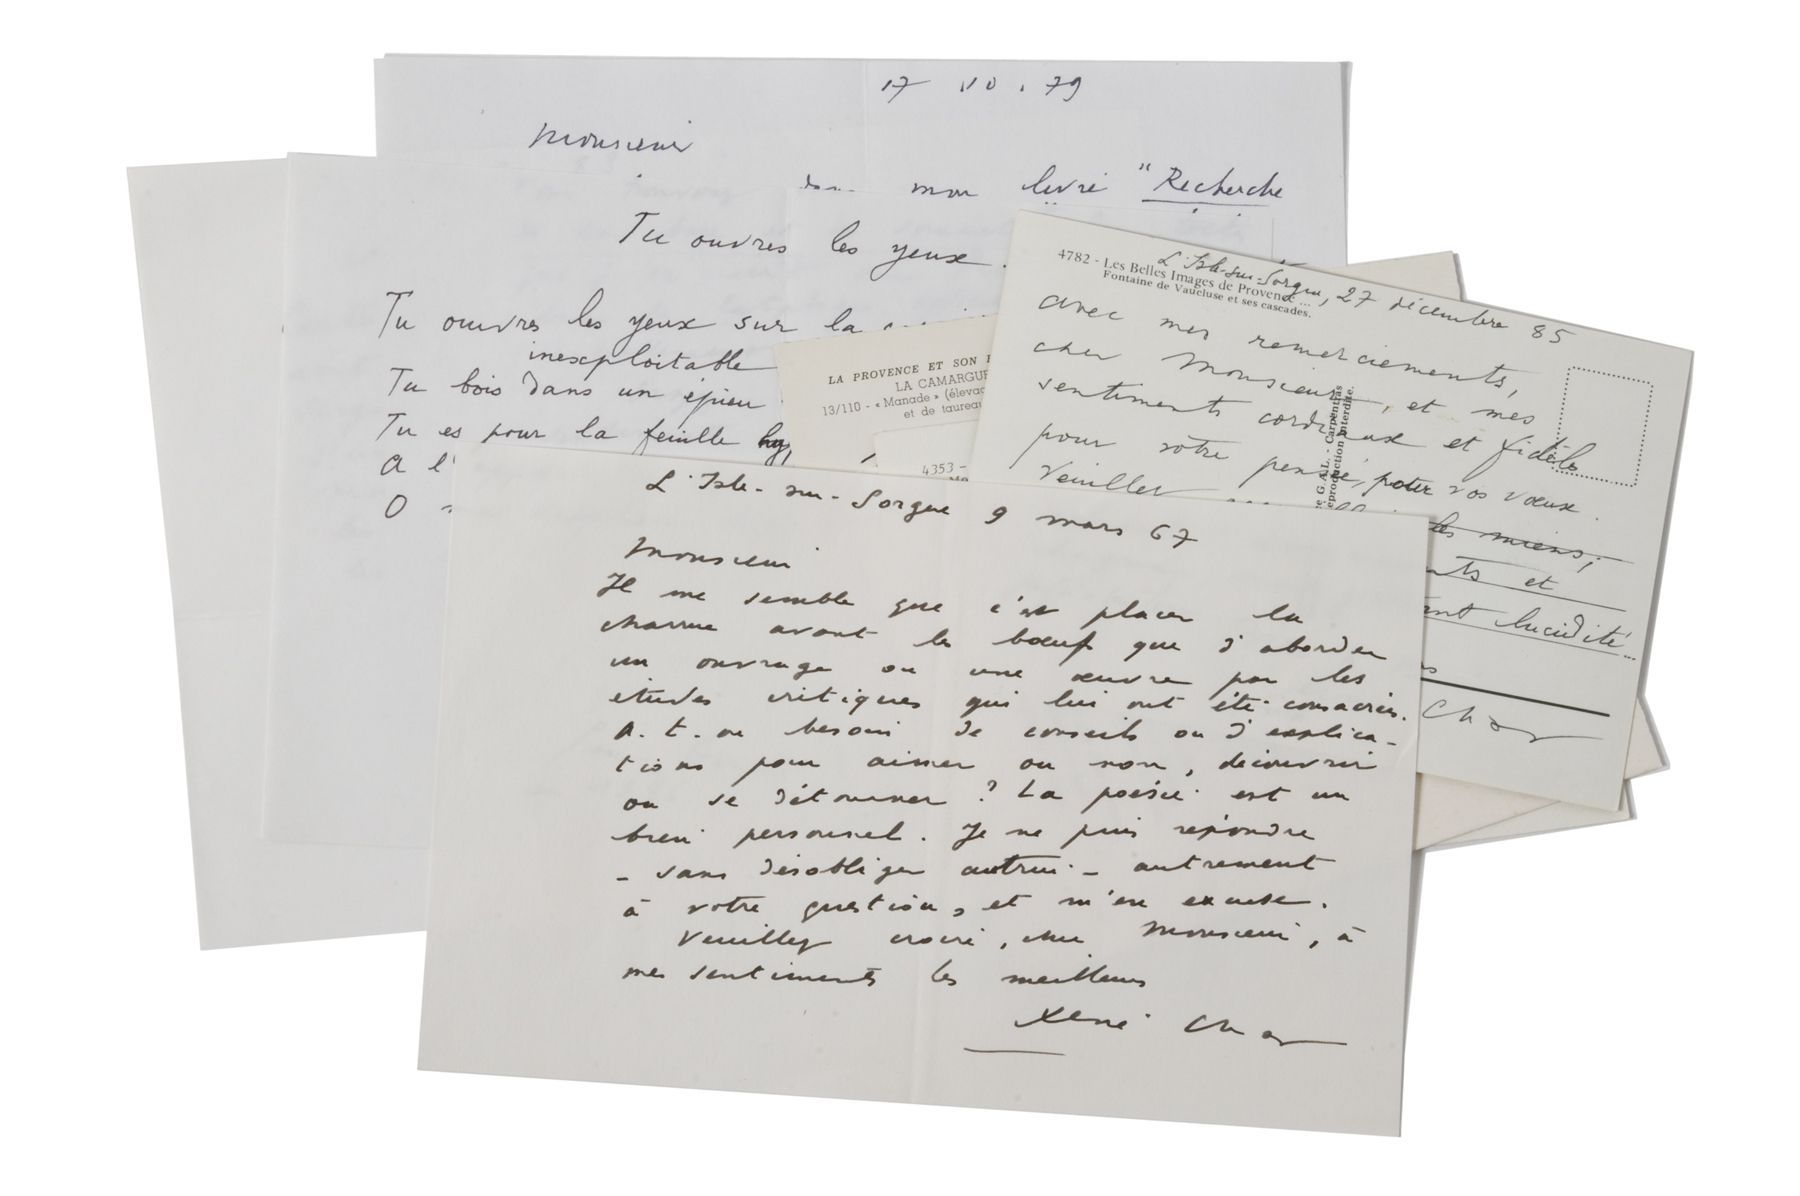 17 . 10 . 79
Monsieur
dans mon livre "Recherche
Tu ouvres les yeux.
Tu ouvres les yeux sur la
inexploitable
Tu bois dans un épieu
Tu es pour la feuille
A l'
O
LA PROVENCE ET SON
LA CAMARGUE
13/110 - « Manade » (élevag
et de taureau
4353 -
4782 - Les Belles Images de Provence ...
Fontaine de Vaucluse et ses cascades.
L'Isle-sur-Sorgue, 27 décembre 85
avec mes remerciements,
cher Monsieur, et mes
sentiments cordiaux et fidèles
pour votre pensée, pour vos vœux.
Veuillez
les miens,
et
lucidité...
Char
G.A.L. - Carpentras
eproduction interdite.
L'Isle-sur-Sorgue 9 mars 67
Monsieur
Il me semble que c'est placer la
charrue avant le bœuf que d'aborder
un ouvrage ou une œuvre par les
études critiques qui lui ont été consacrées.
A.t.on besoin de conseils ou d'explica-
tions pour aimer ou non, découvrir
ou se détourner ? La poésie est un
bien personnel. Je ne puis répondre
- sans désobliger autrui - autrement
à votre question, et m'en excuse.
Veuillez croire, cher Monsieur, à
mes sentiments les meilleurs
René Char